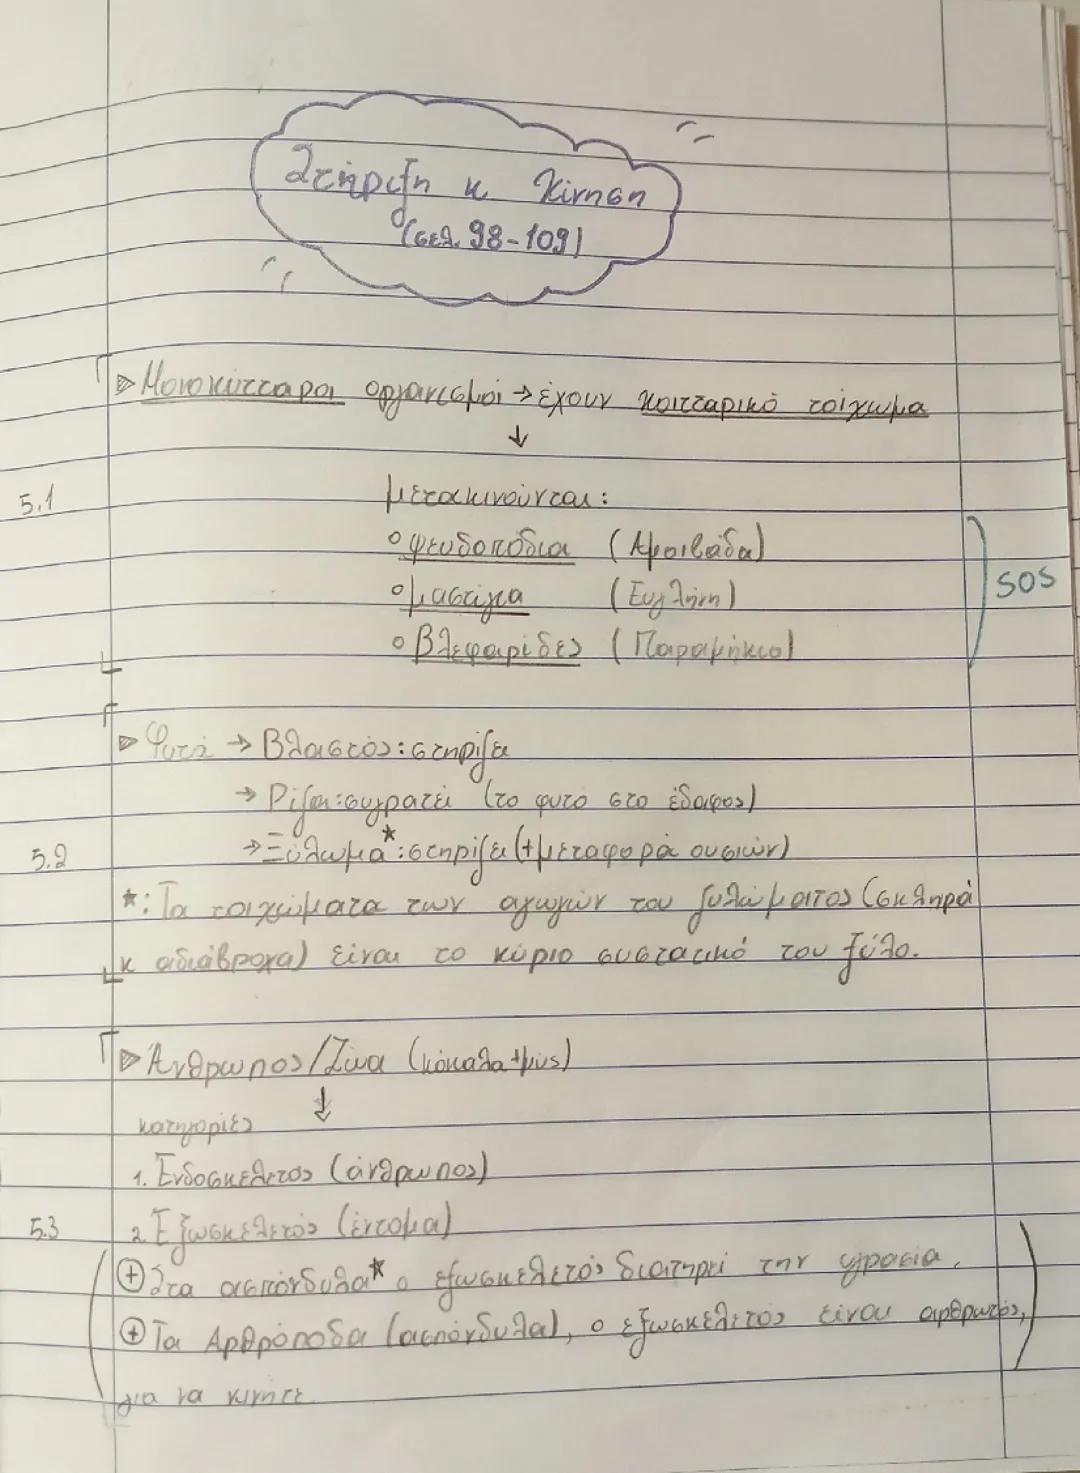 Στήριξη κ Κίνηση
(σελ. 98-109)
▷ Μονοκύτταροι οργανισμοί → έχουν κυτταρικό τοίχωμα
↓
5.1 μετακινούνται:
ο ψευδοπόδια (Αμοιβάδα)
ο μαστίγια (Ευγλήνη)
SOS
ο Βλεφαρίδες (Παραμήκιο)
▷ Φυτά → Βλαστός: στηρίζει
→ Ρίζα: συγρατεί (το φυτό στο έδαφος)
5.2 → Ξύλωμα*: στηρίζει (+μεταφορά ουσιών)
*: Τα τοιχώματα των αγωγών του ξυλώματος (σκληρά
κ αδιάβροχα) είναι το κύριο συστατικό του ξύλο.
▷ Άνθρωπος/Ζώα (κόκαλα+μύς)
↓
κατηγορίες
1. Ενδοσκελετός (άνθρωπος)
5.3 2. Εξωσκελετός (έντομα)
⊕ Στα ασπόνδυλα* ο εξωσκελετός διατηρεί την υγρασία.
⊕ Τα Αρθρόποδα (ασπόνδυλα), ο εξωσκελετός είναι αρθρωτός,
για να